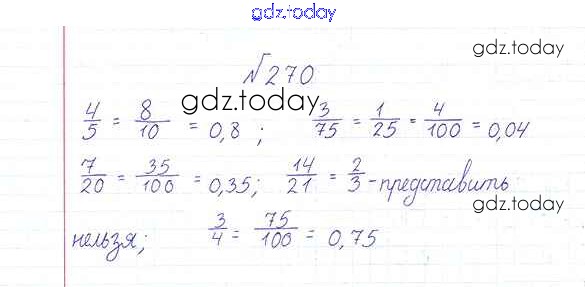 gdz.today
gdz.today
№270
gdz.today
4/5 = 8/10 = 0,8 ; 3/75 = 1/25 = 4/100 = 0,04
7/20 = 35/100 = 0,35; 14/21 = 2/3 - представить
gdz.today
нельзя; 3/4 = 75/100 = 0,75